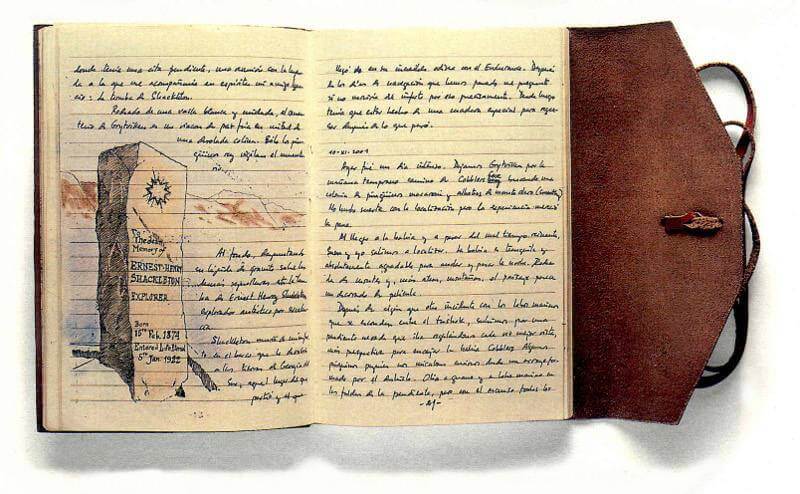 donde tenía una cita pendiente, una reunión con la
de a la que me acompañaría en espíritu mi amigo
: la tumba de Shackleton.
Rodeado de una valla blanca y cuidada, el cemen
terio de Grytviken es un rincón de paz fría en mitad de
una desolada colina. Sólo los pin
güinos rey vigilan el
To
The dear
Memory of
ERNEST HENRY
SHACKLETON
EXPLORER
Born
15th Feb. 1874
Entered Life Eternal
5th Jan 1922
Al fondo, despuntando
en lápida de granito sobre las
demás sepulturas está la tum
ba de Ernest Henry Shackleton
explorador antártico por
Shackleton murió de un infar
to en el barco que lo devolvía
a las tierras de Georgia del
Sur, aquel lugar del que
partió y al que
llegó de en su increíble odisea con el Endurance. Después
de los días de navegación que hemos pasado me pregunto
si no moriría del infarto por eso precisamente. Desde luego
tenía que estar hecho de una madera especial para regre
sar después de lo que pasó.
10-XI-2001
Ayer fue un día intenso. Dejamos Grytviken por la
mañana temprano camino de Cobblers Cove buscando una
colonia de pingüinos macaroni y albatros de manto claro
No hubo suerte con la localización pero la experiencia mereció
la pena.
Al llegar a la bahía y a pesar del mal tiempo reinante,
y yo salimos a localizar. La bahía es tranquila y
absolutamente agradable para andar y pasar la noche. Rodea
da de monte y, más altas, montañas, el paisaje parece
un decorado de película.
Después de algún que otro incidente con los lobos marinos
que se esconden entre el tushok, subimos por una
pendiente nevada que iba regalándonos cada vez mejor vista,
mas perspectiva para encajar la bahía Cobblers. Algunos
pingüinos papúas nos miraban curiosos desde una
mado por el deshielo. Olía a guano y a lobo marino en
las faldas de la pendiente, pero con el ascenso todos los
-21-